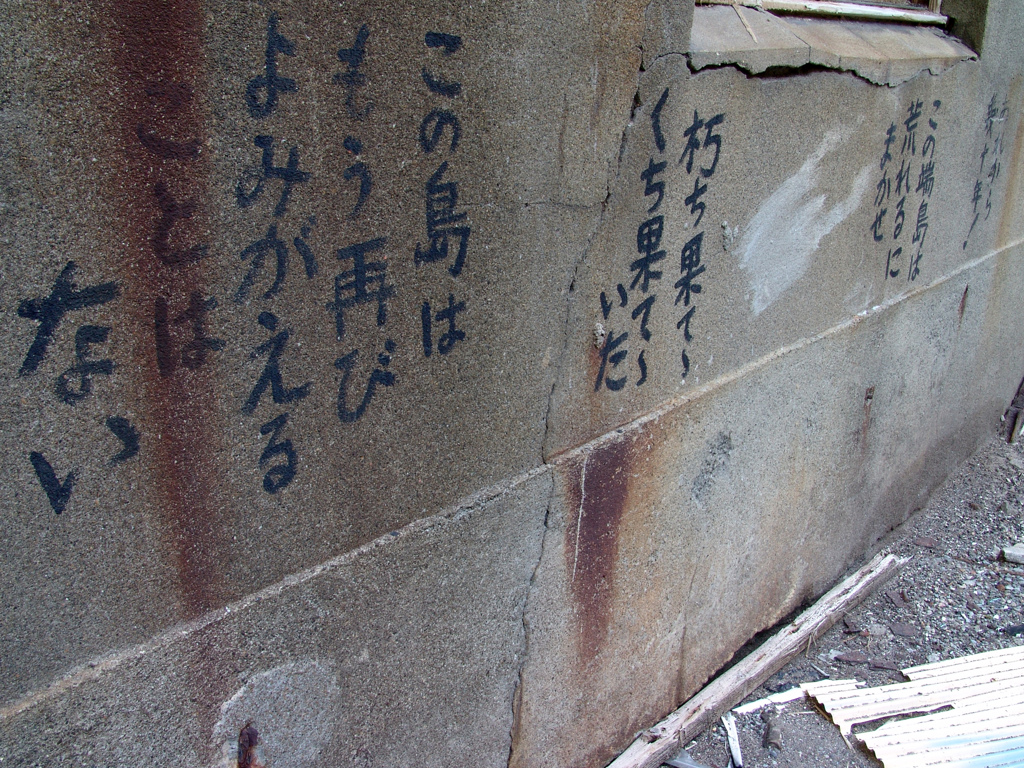 あれから
十年!
この端島は
荒れるに
まかせ
朽ち果て〜
くち果て〜
いた
この島は
もう再び
よみがえる
ことは
ない